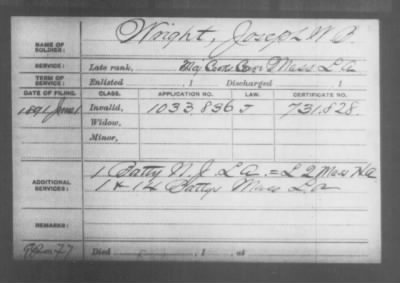 NAME OF SOLDIER: Wright, Joseph W. B.
SERVICE: Late rank, Mass L A
TERM OF SERVICE: Enlisted , 1 Discharged , 1
DATE OF FILING. CLASS. APPLICATION NO. LAW. CERTIFICATE NO.
1891 June 1 Invalid, 1033,836 J 731,828.
Widow,
Minor,
ADDITIONAL SERVICES: 1 Batty N.J. L A. = L 2 Mass H A
1 & 14 Battys Mass L. A
REMARKS:
Died , 1 , at